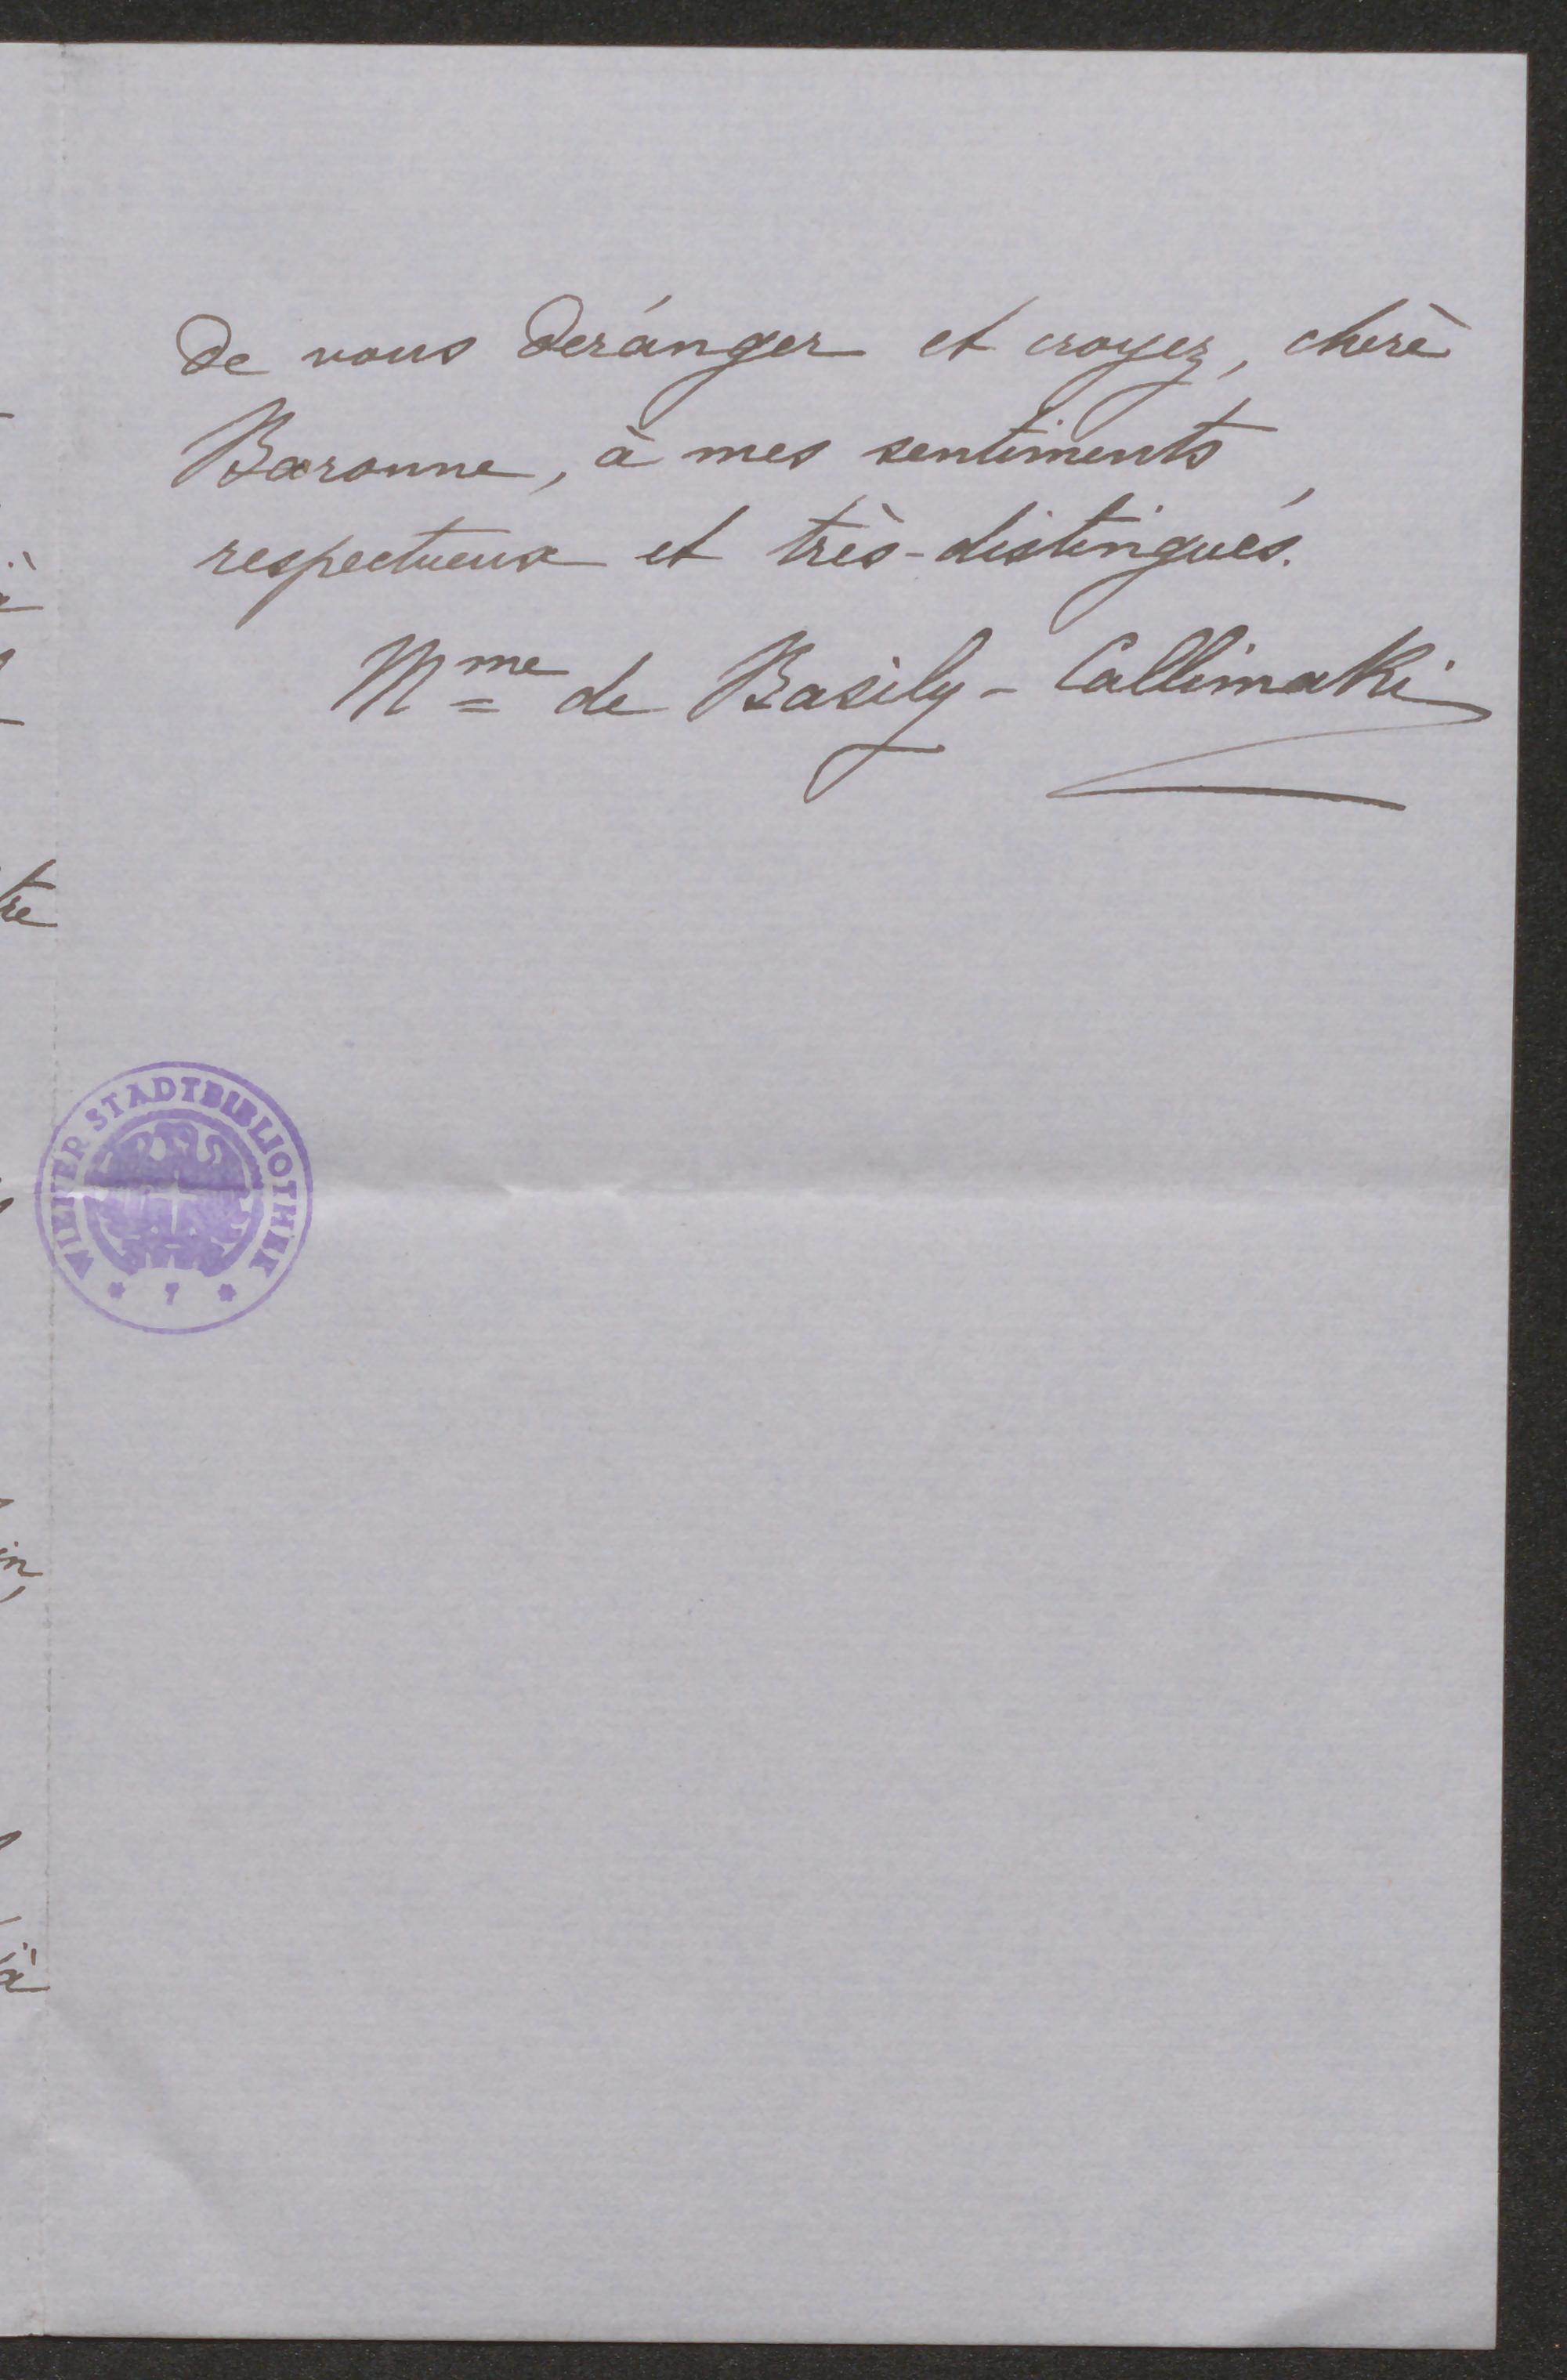 de vous deránger et croyez, cherè
Baronne, à mes sentiments
respectueux et très-distingués.
Mme de Basily-Callimaki
tre
WIENER STADTBIBLIOTHEK
* 7 *
in,
à